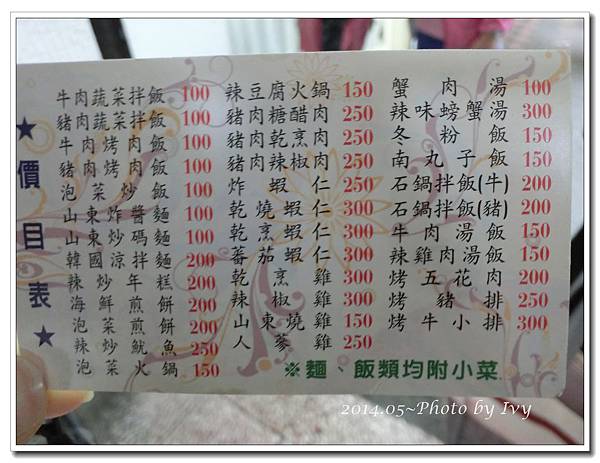 ★價目表★
牛肉蔬菜拌飯 100
豬肉蔬菜拌飯 100
牛肉烤肉飯 100
豬肉烤肉飯 100
泡菜炒飯 100
山東炸醬麵 100
山東炒碼麵 100
韓國涼拌麵 200
辣炒年糕 200
海鮮煎餅 200
泡菜煎餅 200
辣炒魷魚 250
泡菜火鍋 150
辣豆腐火鍋 150
豬肉糖醋肉 250
豬肉乾烹肉 250
豬肉辣椒肉 250
炸蝦仁 250
乾燒蝦仁 300
乾烹蝦仁 300
蕃茄蝦仁 300
乾烹雞 300
辣椒雞 300
山東燒雞 150
人蔘雞 250
蟹肉湯 100
辣味螃蟹湯 300
冬粉飯 150
南丸子飯 150
石鍋拌飯(牛) 200
石鍋拌飯(豬) 200
牛肉湯飯 150
辣雞肉湯飯 150
烤五花肉 200
烤豬排 250
烤牛小排 300
※麵、飯類均附小菜
2014.05~Photo by Ivy